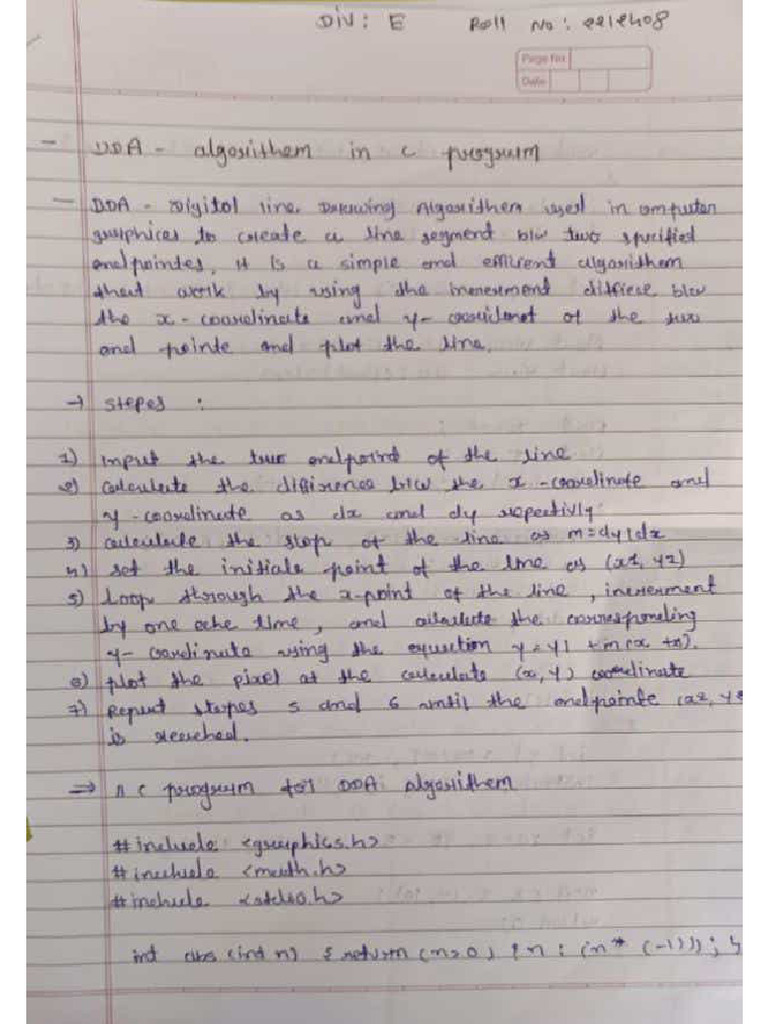 Div: E Roll No: 2212408
Page No
Date
- DDA - algorithem in c program
- DDA - Digitol line Drawing Algorithem used in computer
graphices to create a line segment b/w two specified
endpointes. It is a simple and efficient algorithem
that work by using the incremend diffriese b/w
the x-coordinate and y-coordinet of the two
end pointe and plot the line.
→ Stepes :
1) Input the two endpoint of the line
2) calculate the diffirence b/w the x-coordinate and
y-coordinate as dx and dy repectivly
3) calculate the slop of the line as m=dy/dx
4) set the initiale point of the line as
5) Loop through the x-point of the line, increment
by one time, and calculate the corresponding
y-coordinate using the equetion y=y1 +m(x
6) plot the pixel at the calculate (x,y) coordinate
7) Repeat stepes 5 and 6 until the endpointe
is reached.
⇒ A c program for DDA algorithem
#include <graphics.h>
#include <math.h>
#include <stdio.h>
int abs (int n) { return (n>0) ? n : (n* (-1)); }